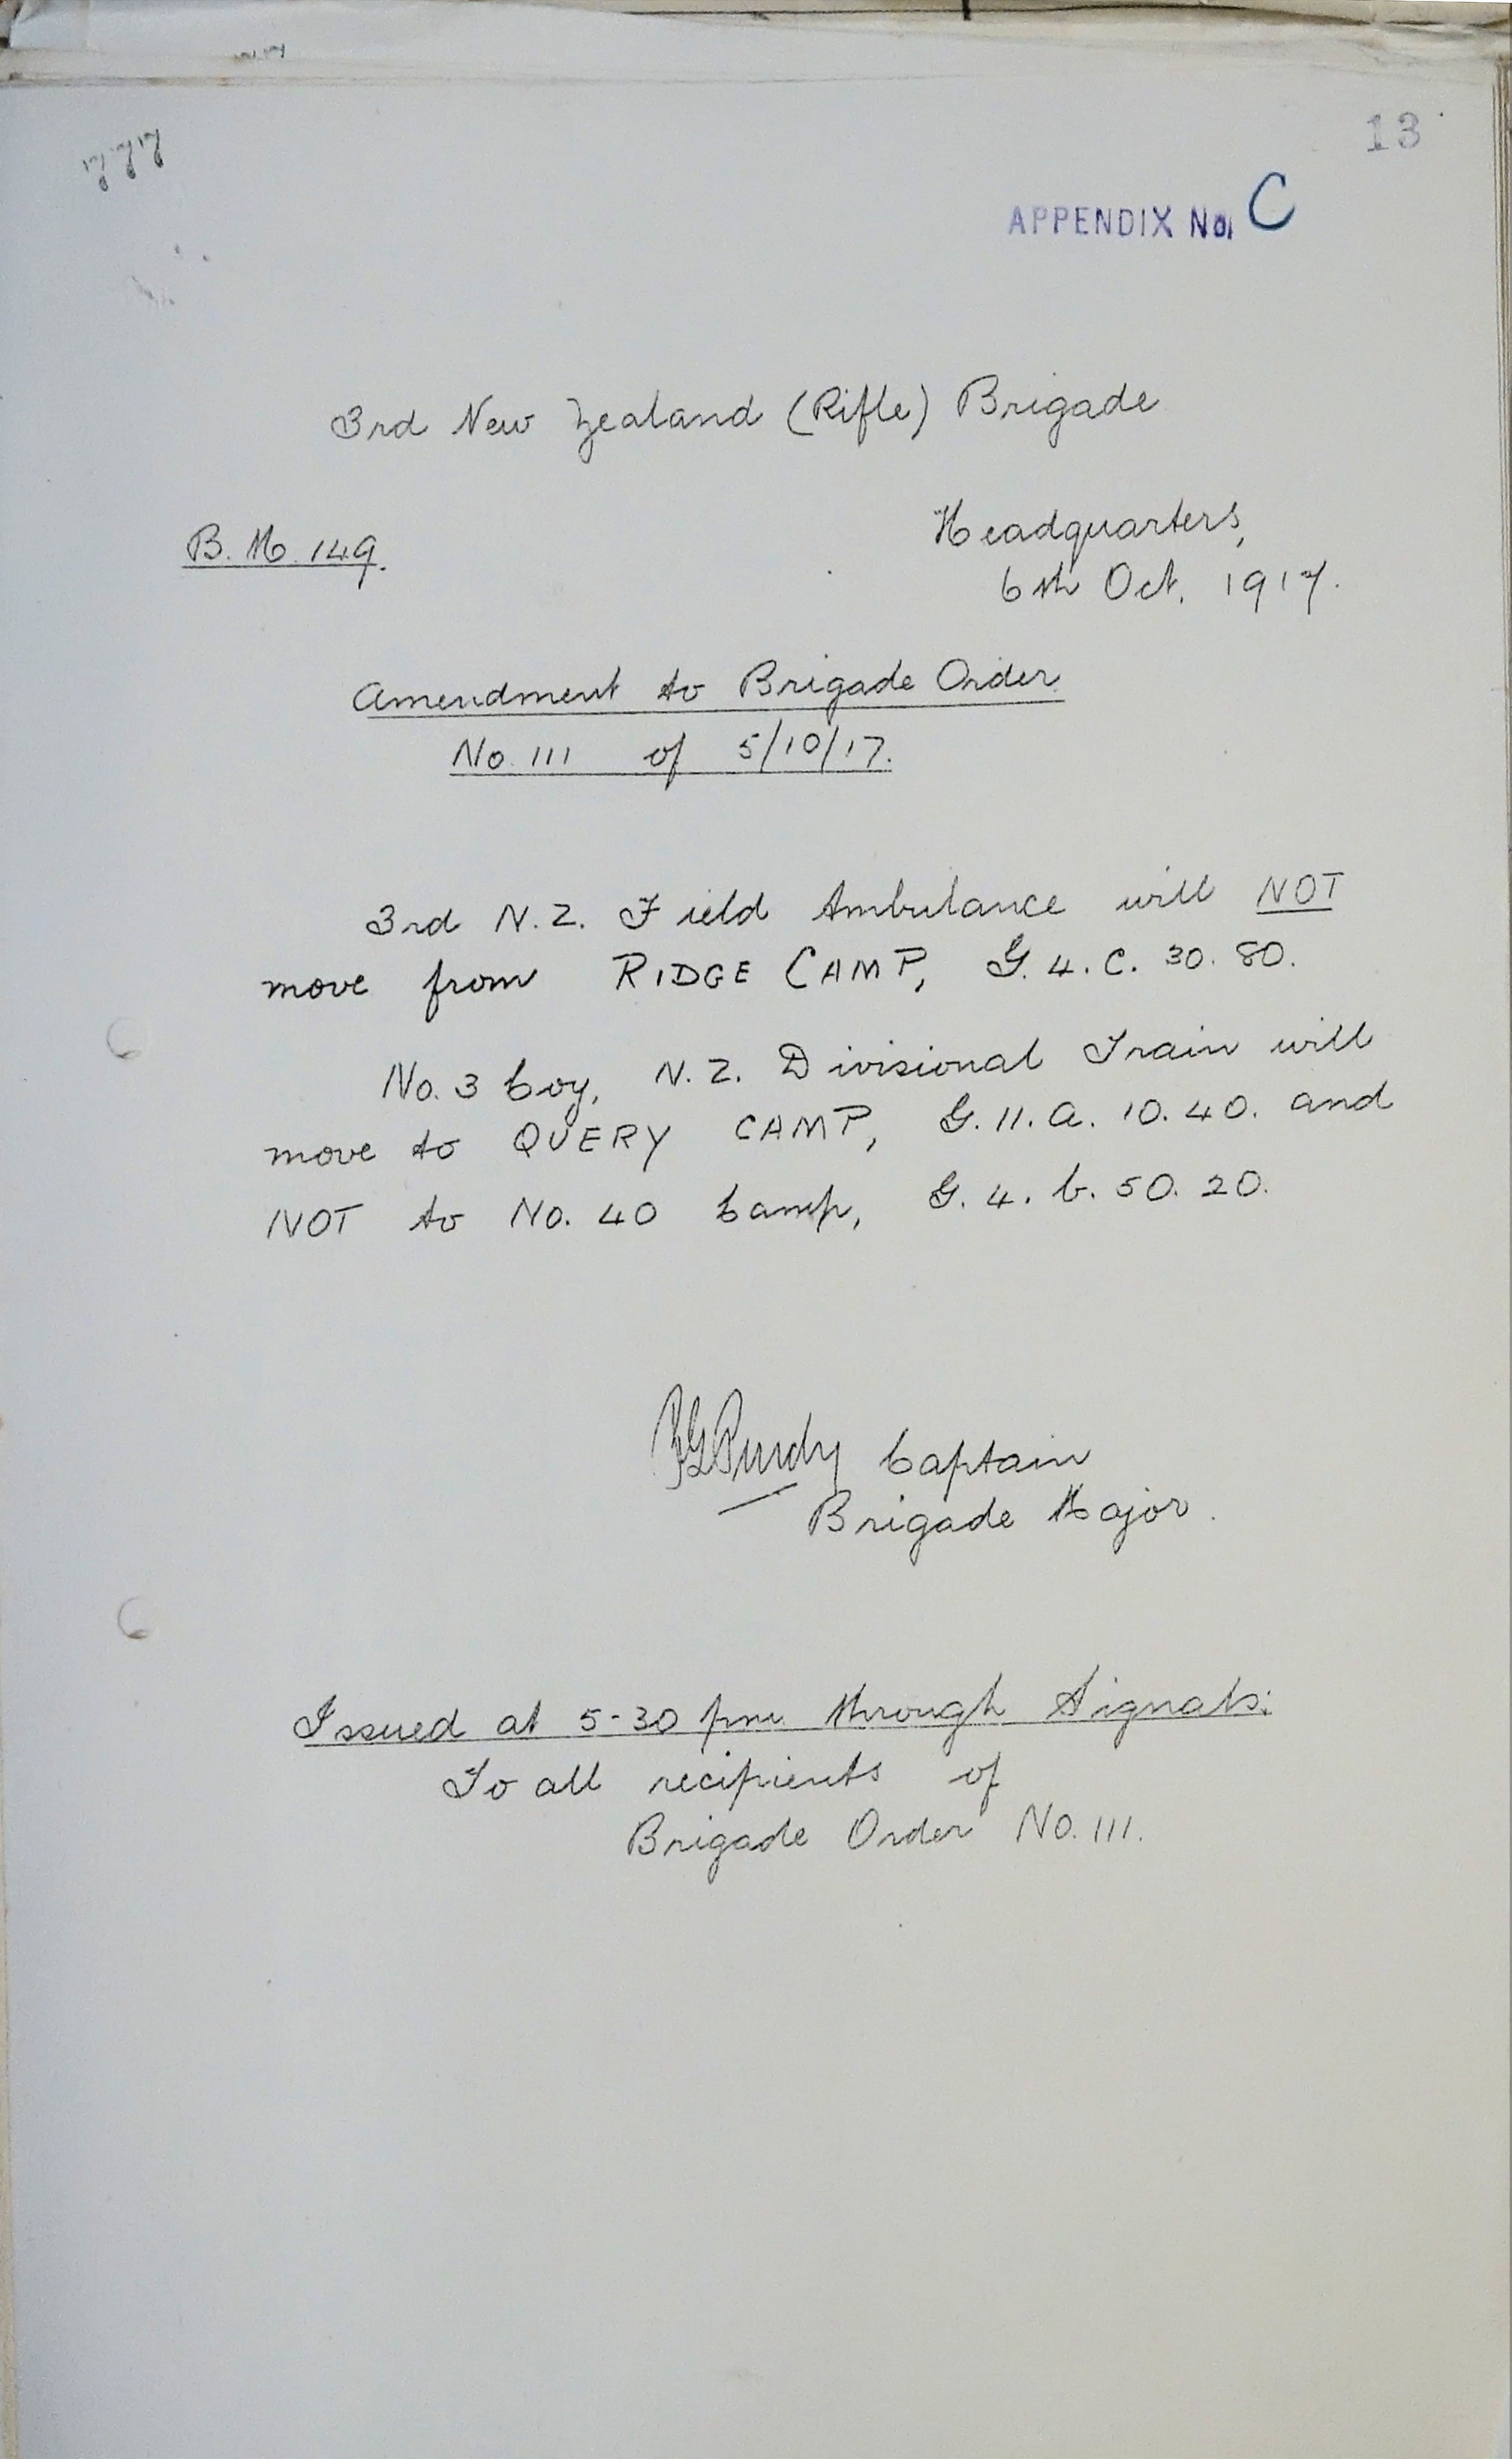 13
APPENDIX No. C
3rd New Zealand (Rifle) Brigade
B.M. 149.
Headquarters,
6th Oct. 1917.
Amendment to Brigade Order
No. 111 of 5/10/17.
3rd N.Z. Field Ambulance will NOT
move from RIDGE CAMP, G. 4. c. 30. 80.
No. 3 Coy, N.Z. Divisional Train will
move to QUERY CAMP, G. 11. a. 10. 40. and
NOT to No. 40 Camp, G. 4. b. 50. 20.
Purdy Captain
Brigade Major.
Issued at 5-30 pm through Signals:
To all recipients of
Brigade Order No. 111.